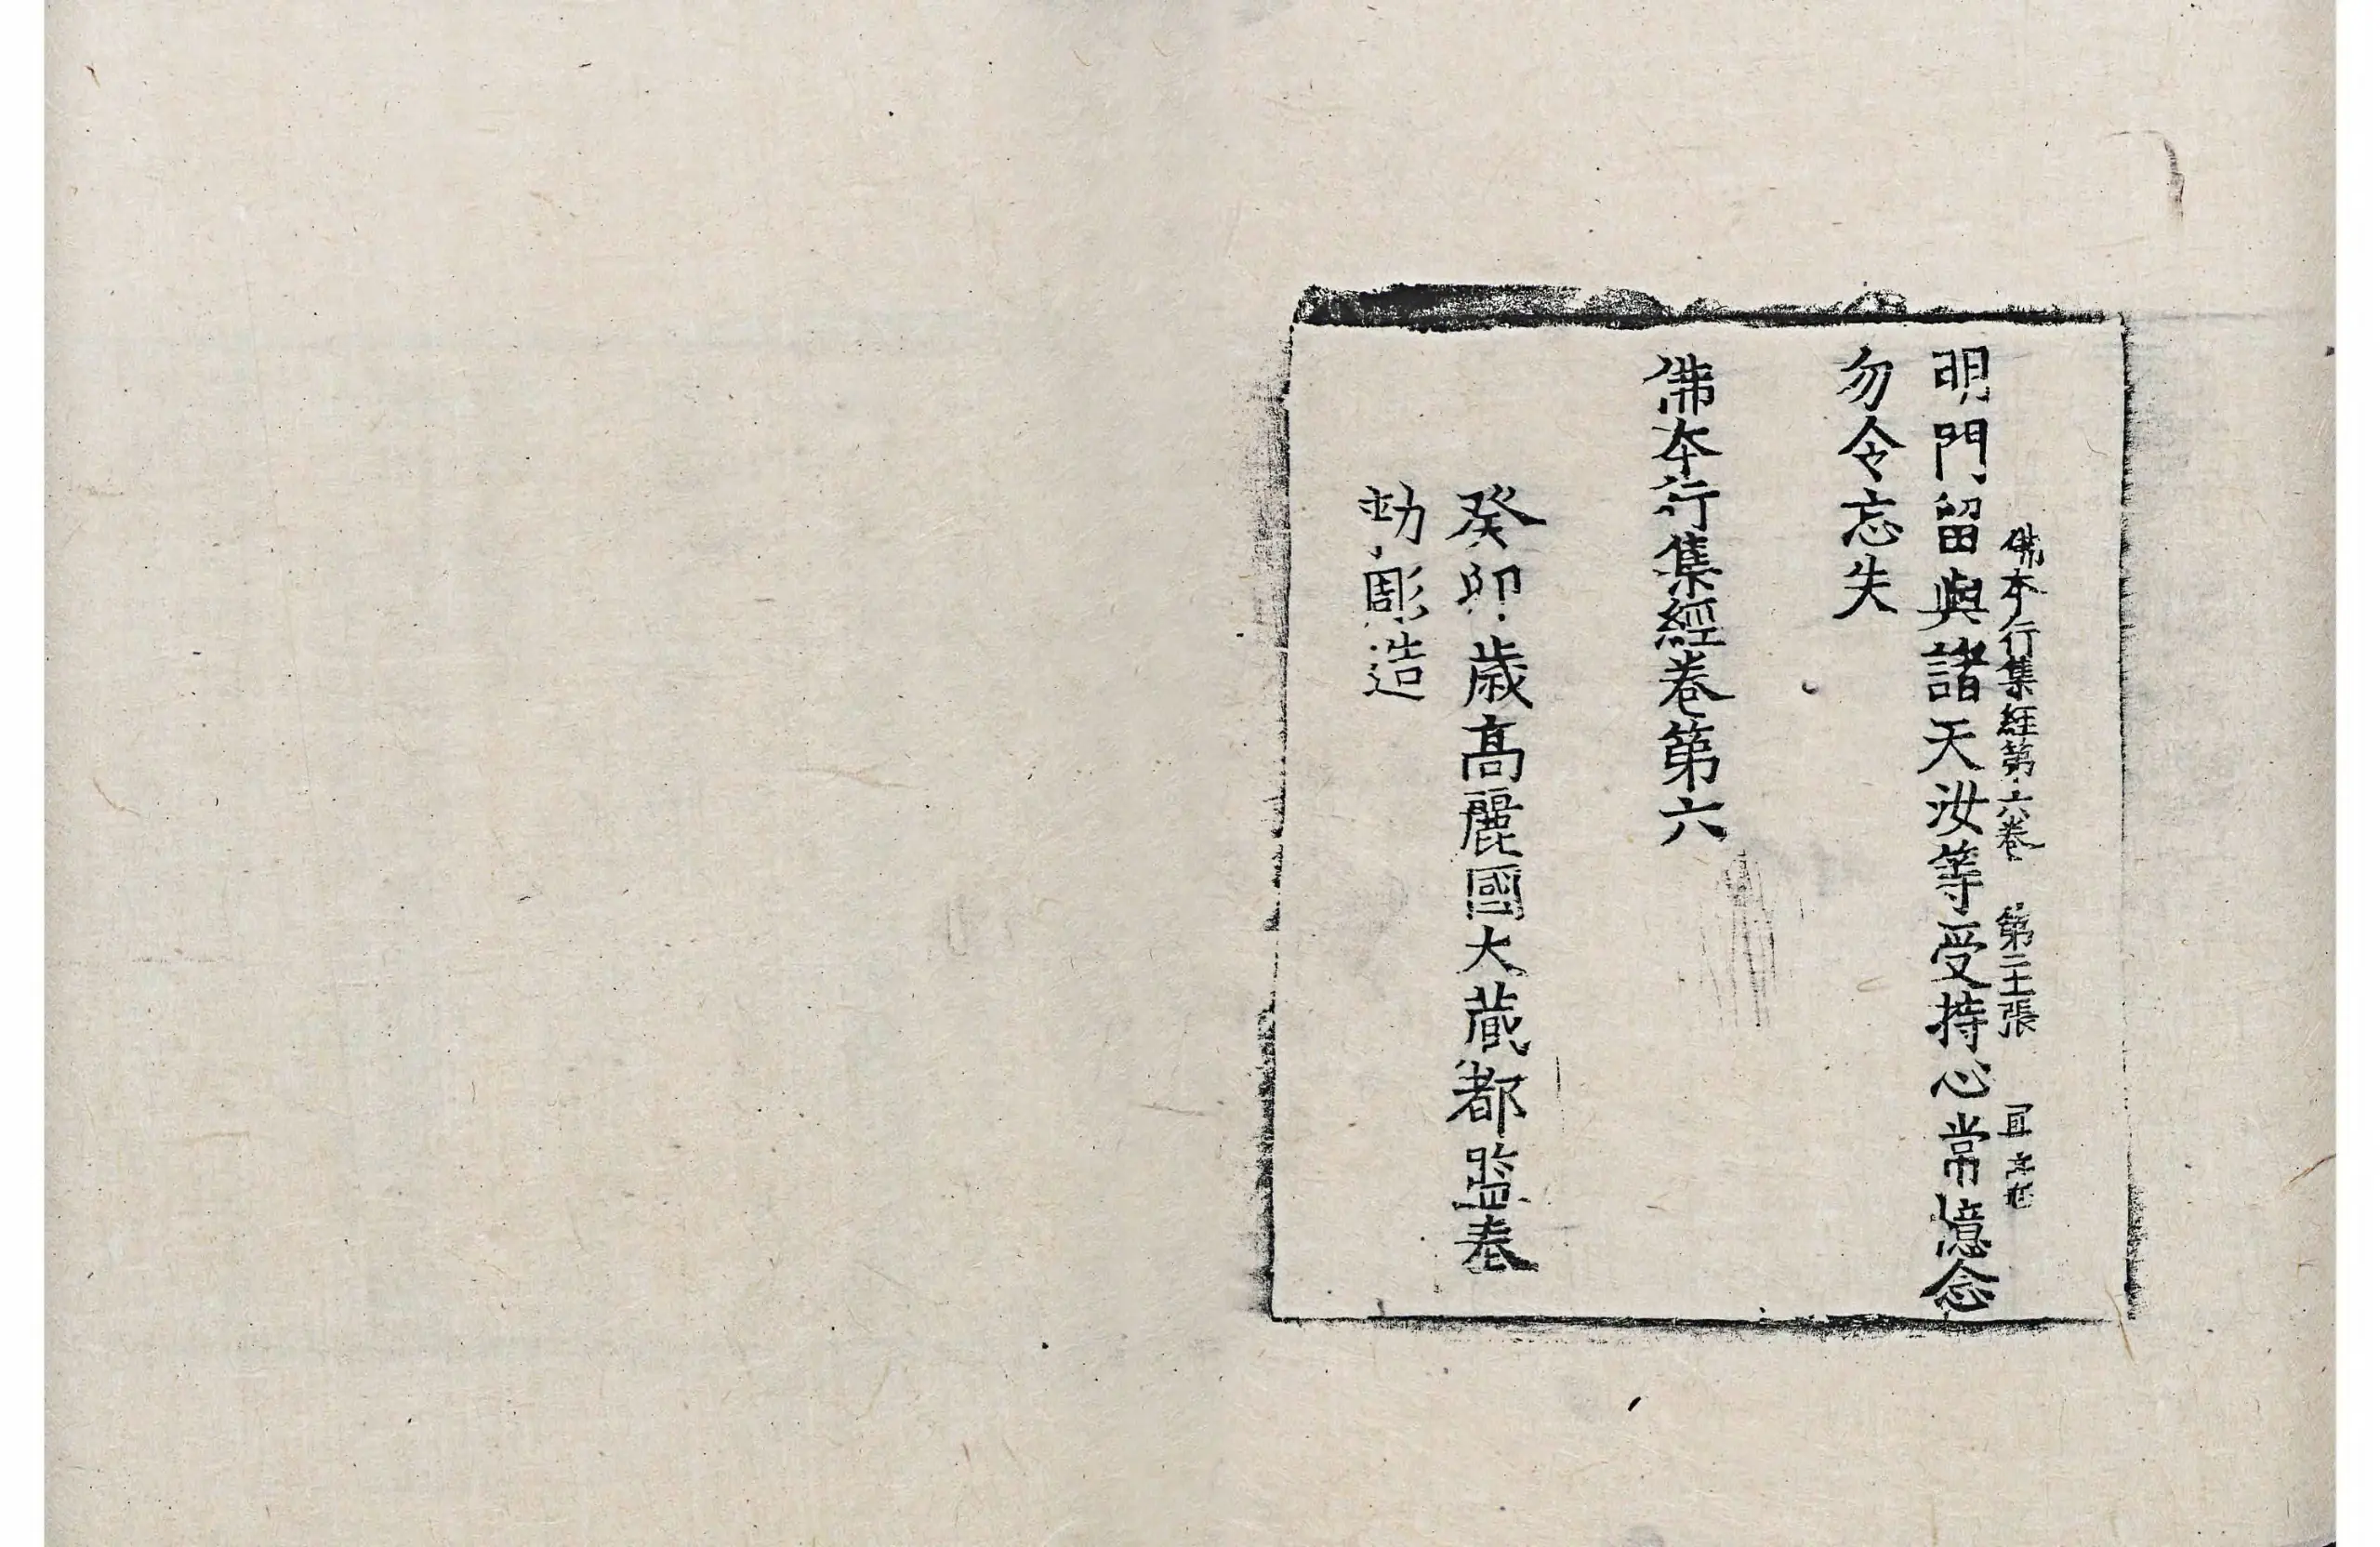 佛本行集經第六卷　第二十一張
明門留與諸天汝等受持心常憶念
勿令忘失
佛本行集經卷第六
癸卯歲高麗國大藏都監奉
勑彫造